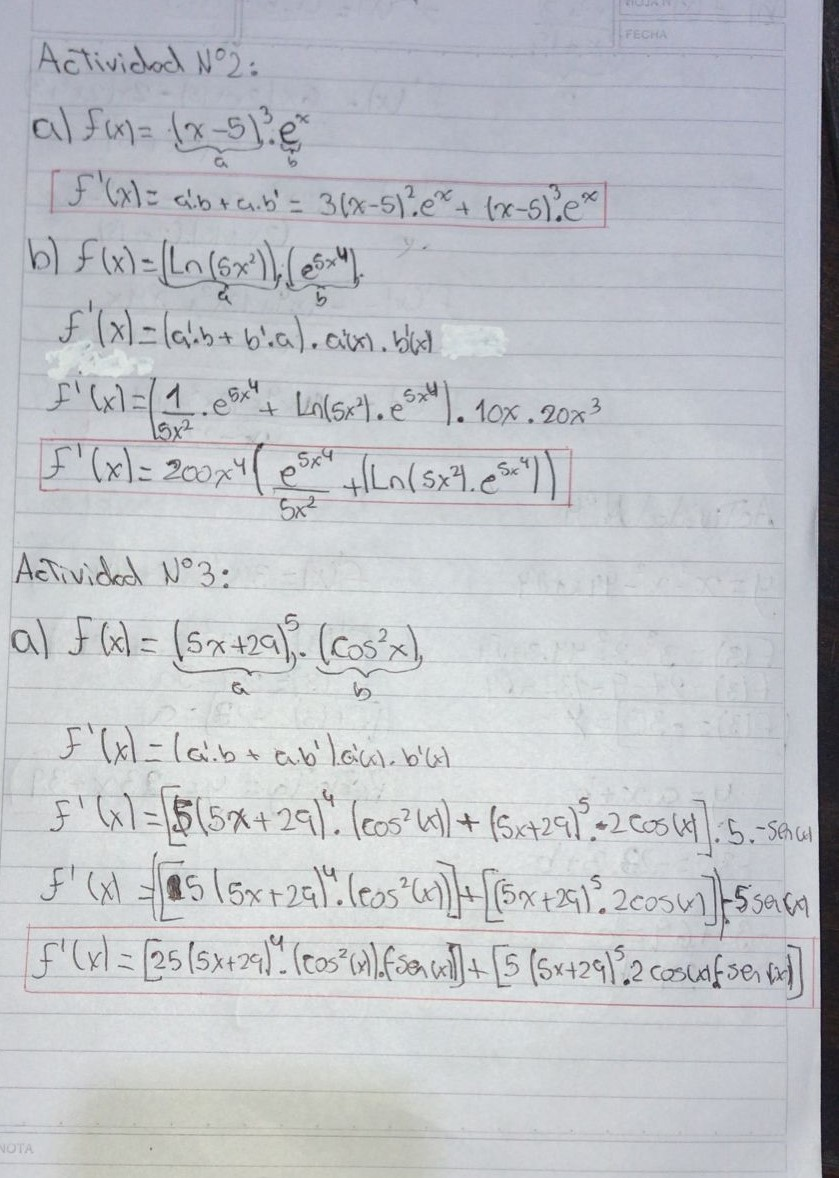 HOJA N°
FECHA
Actividad N°2:
a) f(x) = (x-5)³.eˣ
a b
f'(x) = a'.b + a.b' = 3(x-5)².eˣ + (x-5)³.eˣ
b) f(x) = (Ln(5x²)).(e^{5x⁴}).
a b
f'(x) = (a'.b + b'.a).a'(x).b'(x)
f'(x) = (1/5x² . e^{5x⁴} + Ln(5x²).e^{5x⁴}).10x.20x³
f'(x) = 200x⁴(e^{5x⁴}/5x² + (Ln(5x²).e^{5x⁴}))
Actividad N°3:
a) f(x) = (5x+29)⁵.(cos²x),
a b
f'(x) = (a'.b + a.b').a'(x).b'(x)
f'(x) = [5(5x+29)⁴.(cos²(x)) + (5x+29)⁵.2cos(x)].5.-sen(x)
f'(x) = ([5(5x+29)⁴.(cos²(x))]+[(5x+29)⁵.2cos(x)]).-5sen(x)
f'(x) = [25(5x+29)⁴.(cos²(x)).(-sen(x))]+[5(5x+29)⁵.2cos(x).(-sen(x))]
NOTA